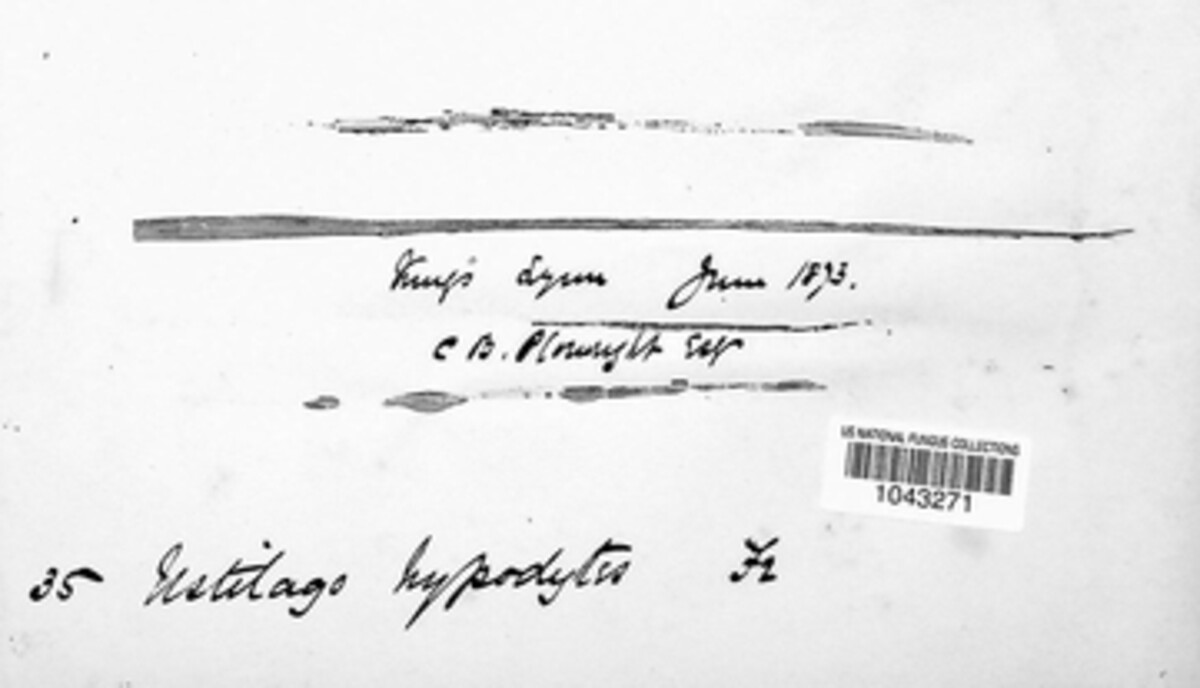 King's Lynn June 1893.
C B. Plowright Esqr
US NATIONAL FUNGUS COLLECTIONS
1043271
35 Ustilago hypodytes Fr